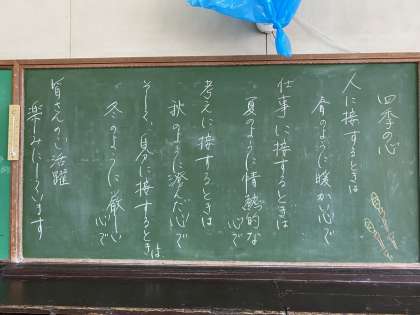 四季の心
人に接するときは
春のように暖か心で
仕事に接するときは
夏のように情熱的な
心で
考えに接するときは
秋のように澄んだ心で
そして、自分に接するときは
冬のように厳しい
心で
皆さんのご活躍
楽しみにしています